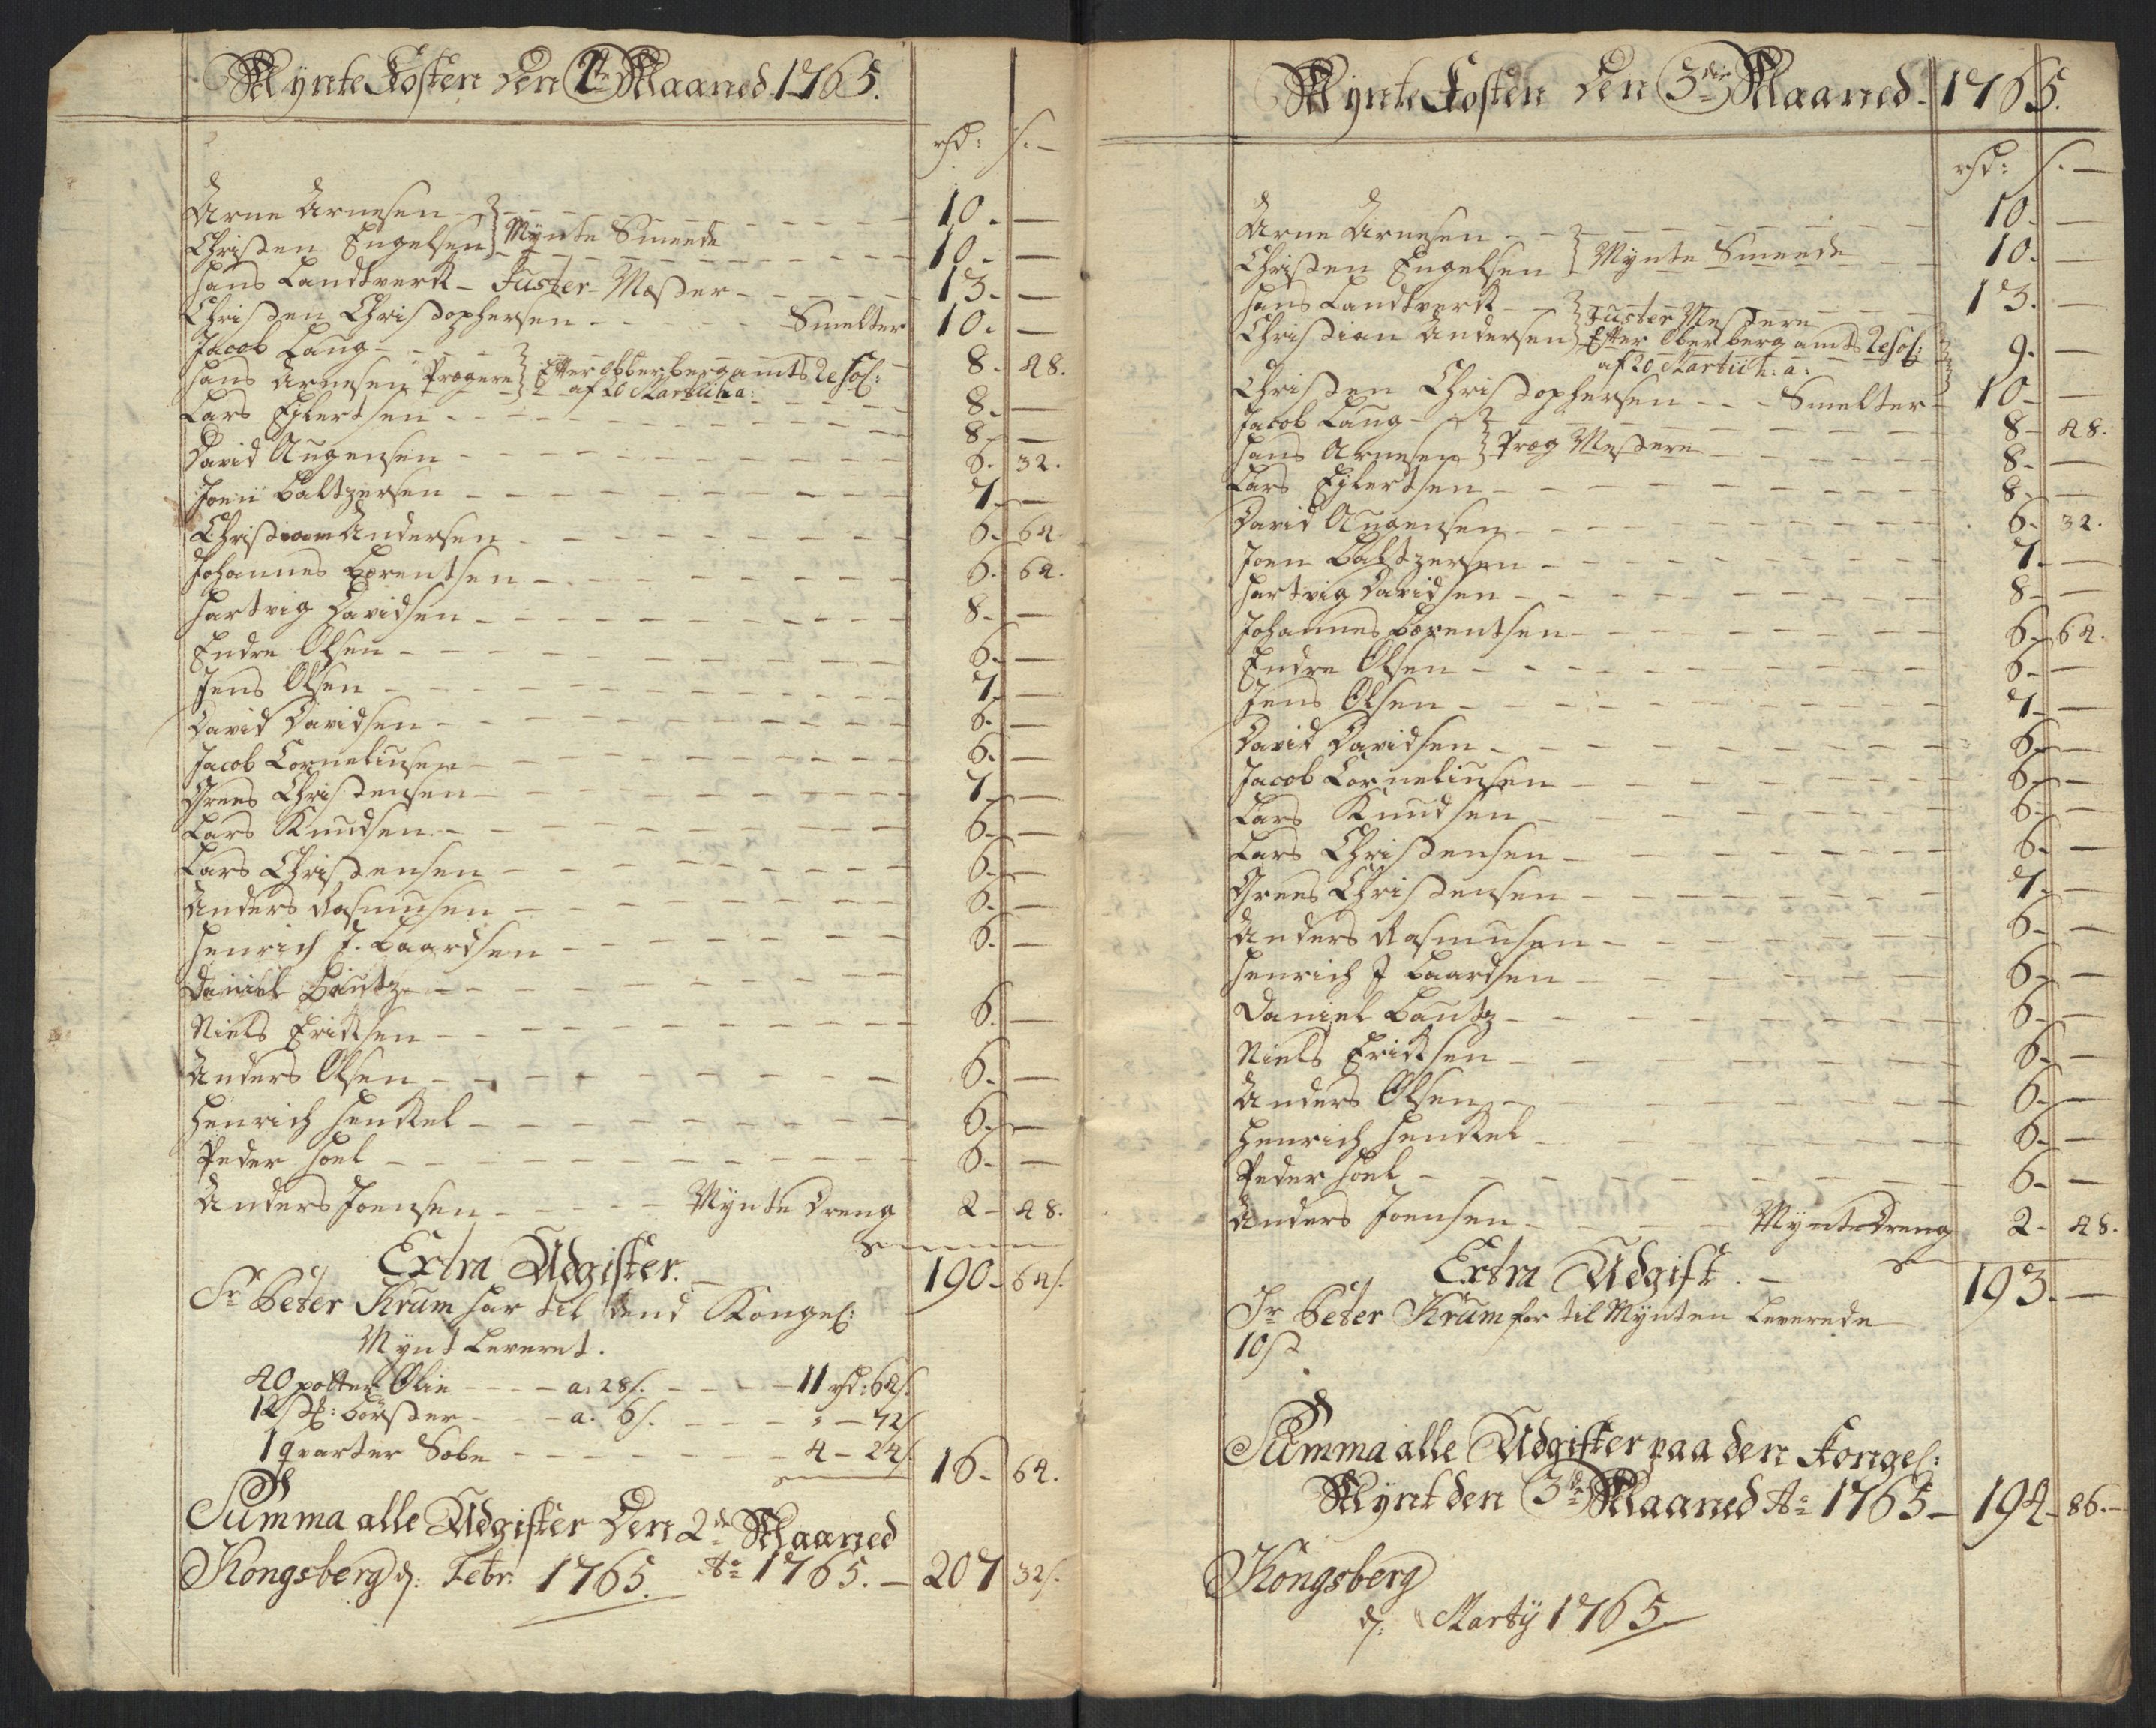 Mynte Kosten den 2de Maaned 1765.
rd: s.
Arne Arnesen - 10. —
Christen Engelsen } Mynte Smeede 10. —
Hans Landtverk - Juster-Mester - 13. —
Christen Christophersen - Smelter 10. —
Jacob Lang - 8. 48.
Hans Arnesen Prægere } Efter Obberbergamts Resol: 8. —
af 20 Martii h: a:
Lars Eylertsen - 8. —
David Augensen - 6. 32.
Joen Baltzersen - 7. —
Christian Andersen - 6. 64.
Johannes Bærentsen - 6. 64.
Hartvig Davidsen - 8. —
Endre Olsen - 6. —
Jens Olsen - 7. —
David Davidsen - 6. —
Jacob Corneliusen - 6. —
Grees Christensen - 7. —
Lars Knudsen - 6. —
Lars Christensen - 6. —
Anders Rasmusen - 6. —
Henrich J. Baardsen - 6. —
Daniel Bautz -
Niels Eriksen - 6. —
Anders Olsen - 6. —
Henrich Henkel - 6. —
Peder Hoel - 6. —
Anders Joensen - Mynte Dreng 2 - 48.
Extra Udgifter. 190 - 64 s.
Sr Peter Krum har til dend Kongel:
Mynt Leveret.
40 potter Olie - a. 28 s. - 11 rd: 64 s.
12 st: Börster - a. 6 s. - " - 72 s.
1 qvarter Sobe - 4 - 24 s. 16. 64.
Summa alle Udgifter den 2de Maaned
Kongsberg d: Febr: 1765. Ao 1765. - 207 32 s.
Mynte Kosten den 3die Maaned 1765.
rd: s. —
Arne Arnesen - 10. —
Christen Engelsen } Mynte Smeede 10. —
Hans Landtverk - } Juster Mestere 13. —
Christian Andersen } Efter Oberbergamts Resol: 9. —
af 20 Martii h: a:
Christen Christophersen - Smelter - 10 - —
Jacob Lang - 8 - 48.
Hans Arnesen } Præg Mestere 8 - —
Lars Eylertsen - 8 - —
David Augensen - 6 - 32.
Joen Baltzersen - 7. —
Hartvig Davidsen - 8 - —
Johannes Bærentsen - 6 - 64.
Endre Olsen - 6 - —
Jens Olsen - 7 - —
David Davidsen - 6 - —
Jacob Corneliusen - 6 - —
Lars Knudsen - 6 - —
Lars Christensen - 6 - —
Grees Christensen - 7. —
Anders Rasmusen - 6 - —
Henrich J Baardsen - 6 - —
Daniel Bautz - 6 - —
Niels Eriksen - 6 - —
Anders Olsen - 6 - —
Henrich Henkel - 6 - —
Peder Hoel - 6 - —
Anders Joensen - Mynte Dreng 2 - 48.
Extra Udgift. - 193. —
Sr Peter Krum for til Mynten Leverede
Summa alle Udgifter paa den Kongel:
Mynt den 3de Maaned Ao 1765 - 194 - 86. -
Kongsberg
d: Martij 1765.